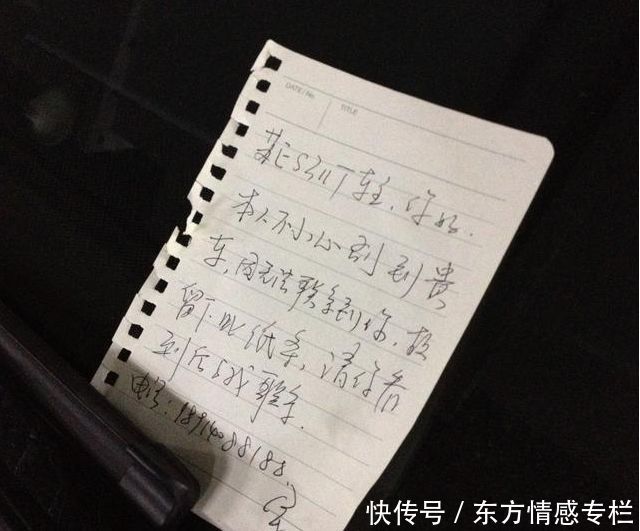 DATE/No TITLE
车主,你好.
本人不小心刮到贵
车,因无法联系到你,故
留下此纸条,请你看
到后与我联系.
电话:
快传号 / 东方情感专栏